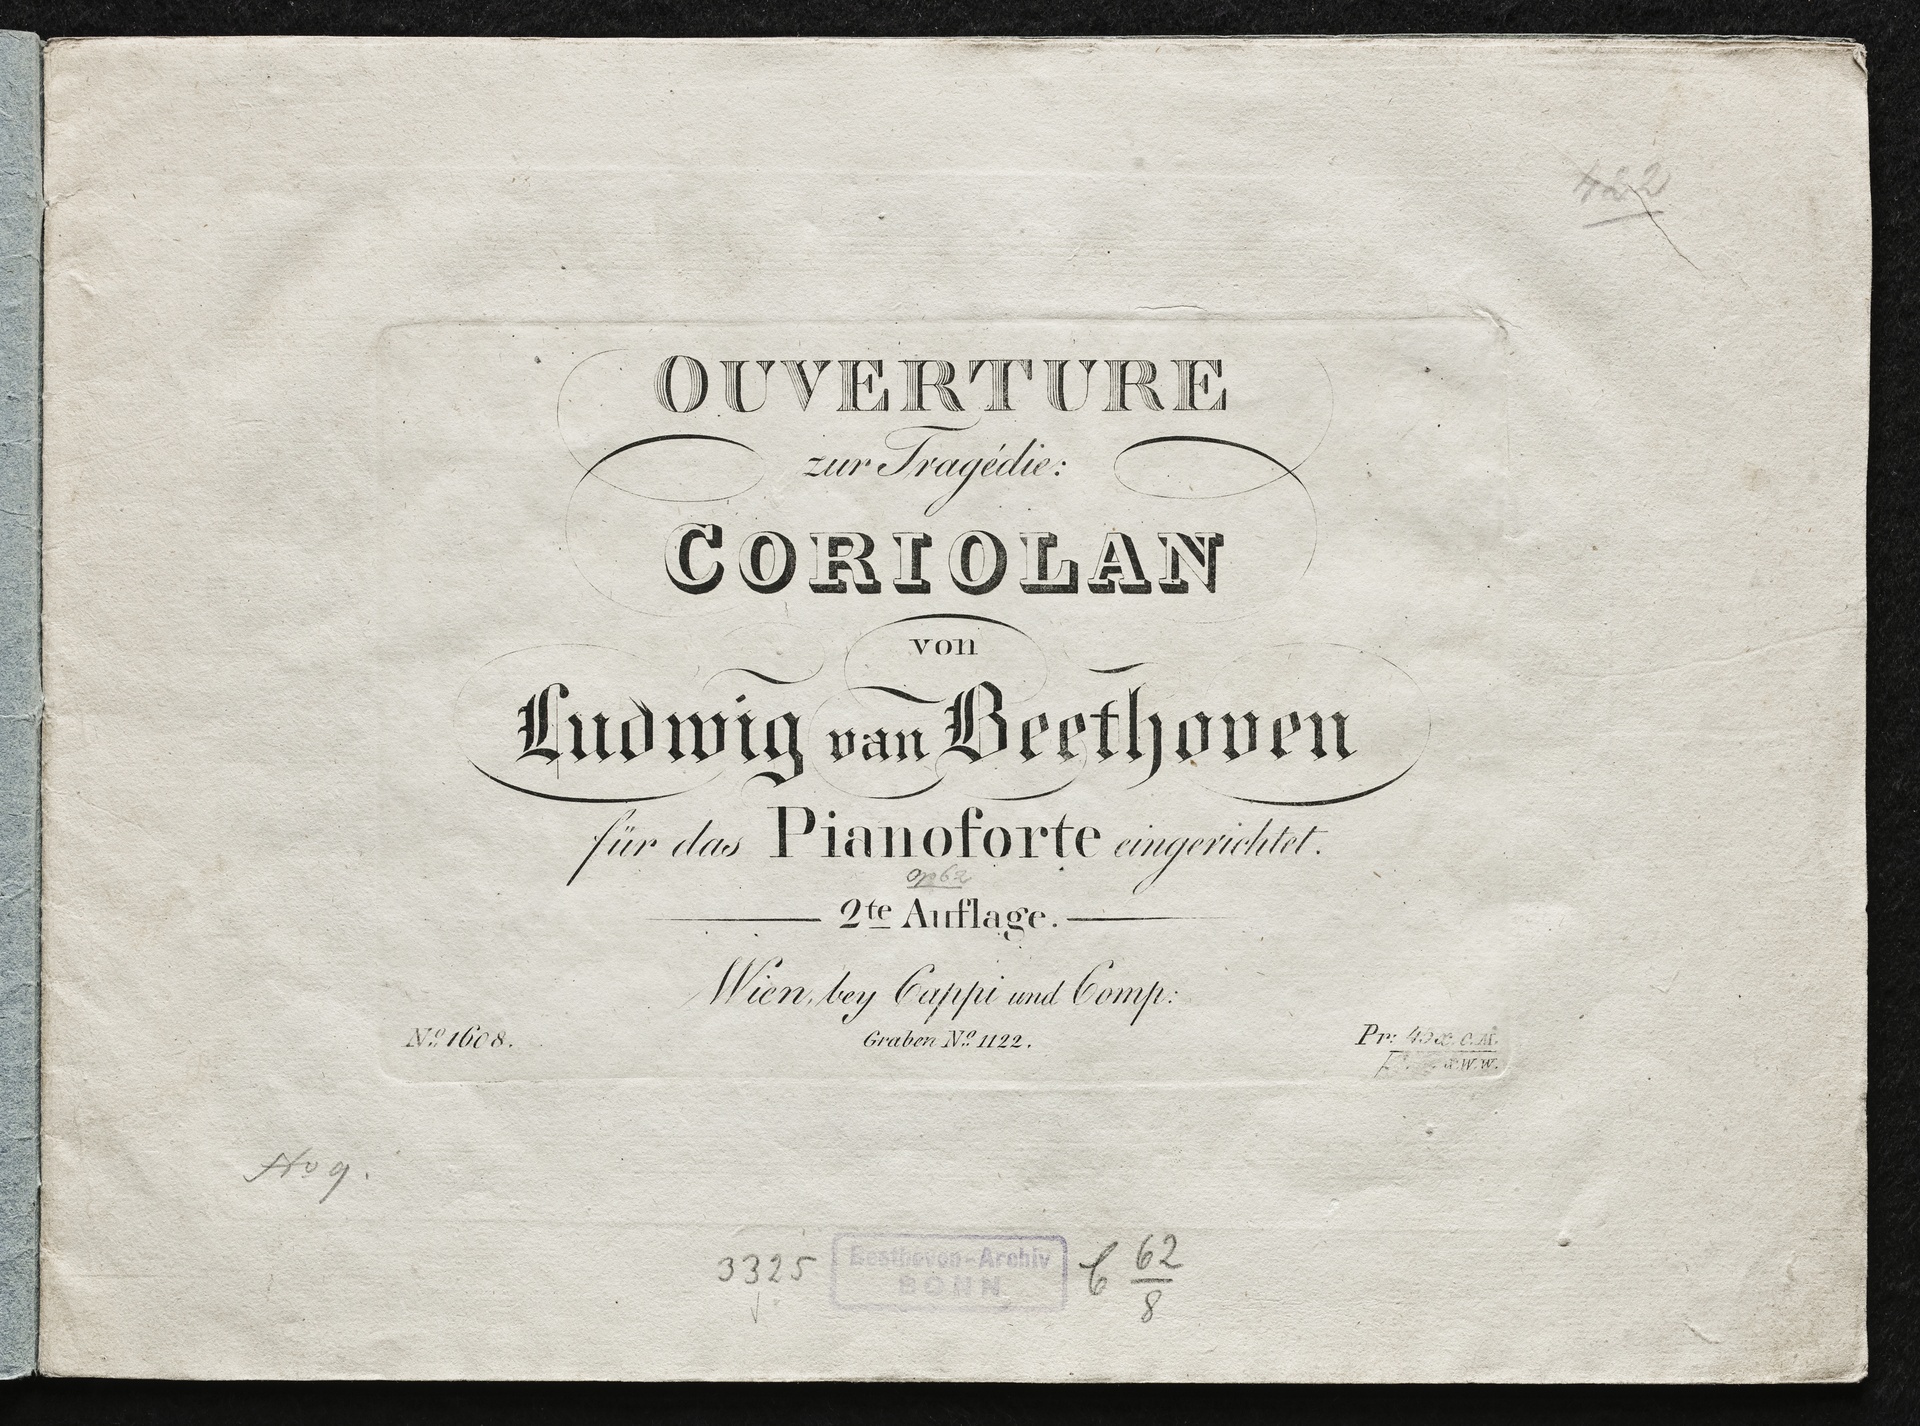 422
OUVERTURE
zur Tragédie:
CORIOLAN
von
Ludwig van Beethoven
für das Pianoforte eingerichtet.
op 62
2te Auflage.
Wien, bey Cappi und Comp:
No 1608.
Graben No 1122.
Pr: 45 x. C.M.
W.W.
No 9.
3325
Beethoven-Archiv
BONN
C 62/8